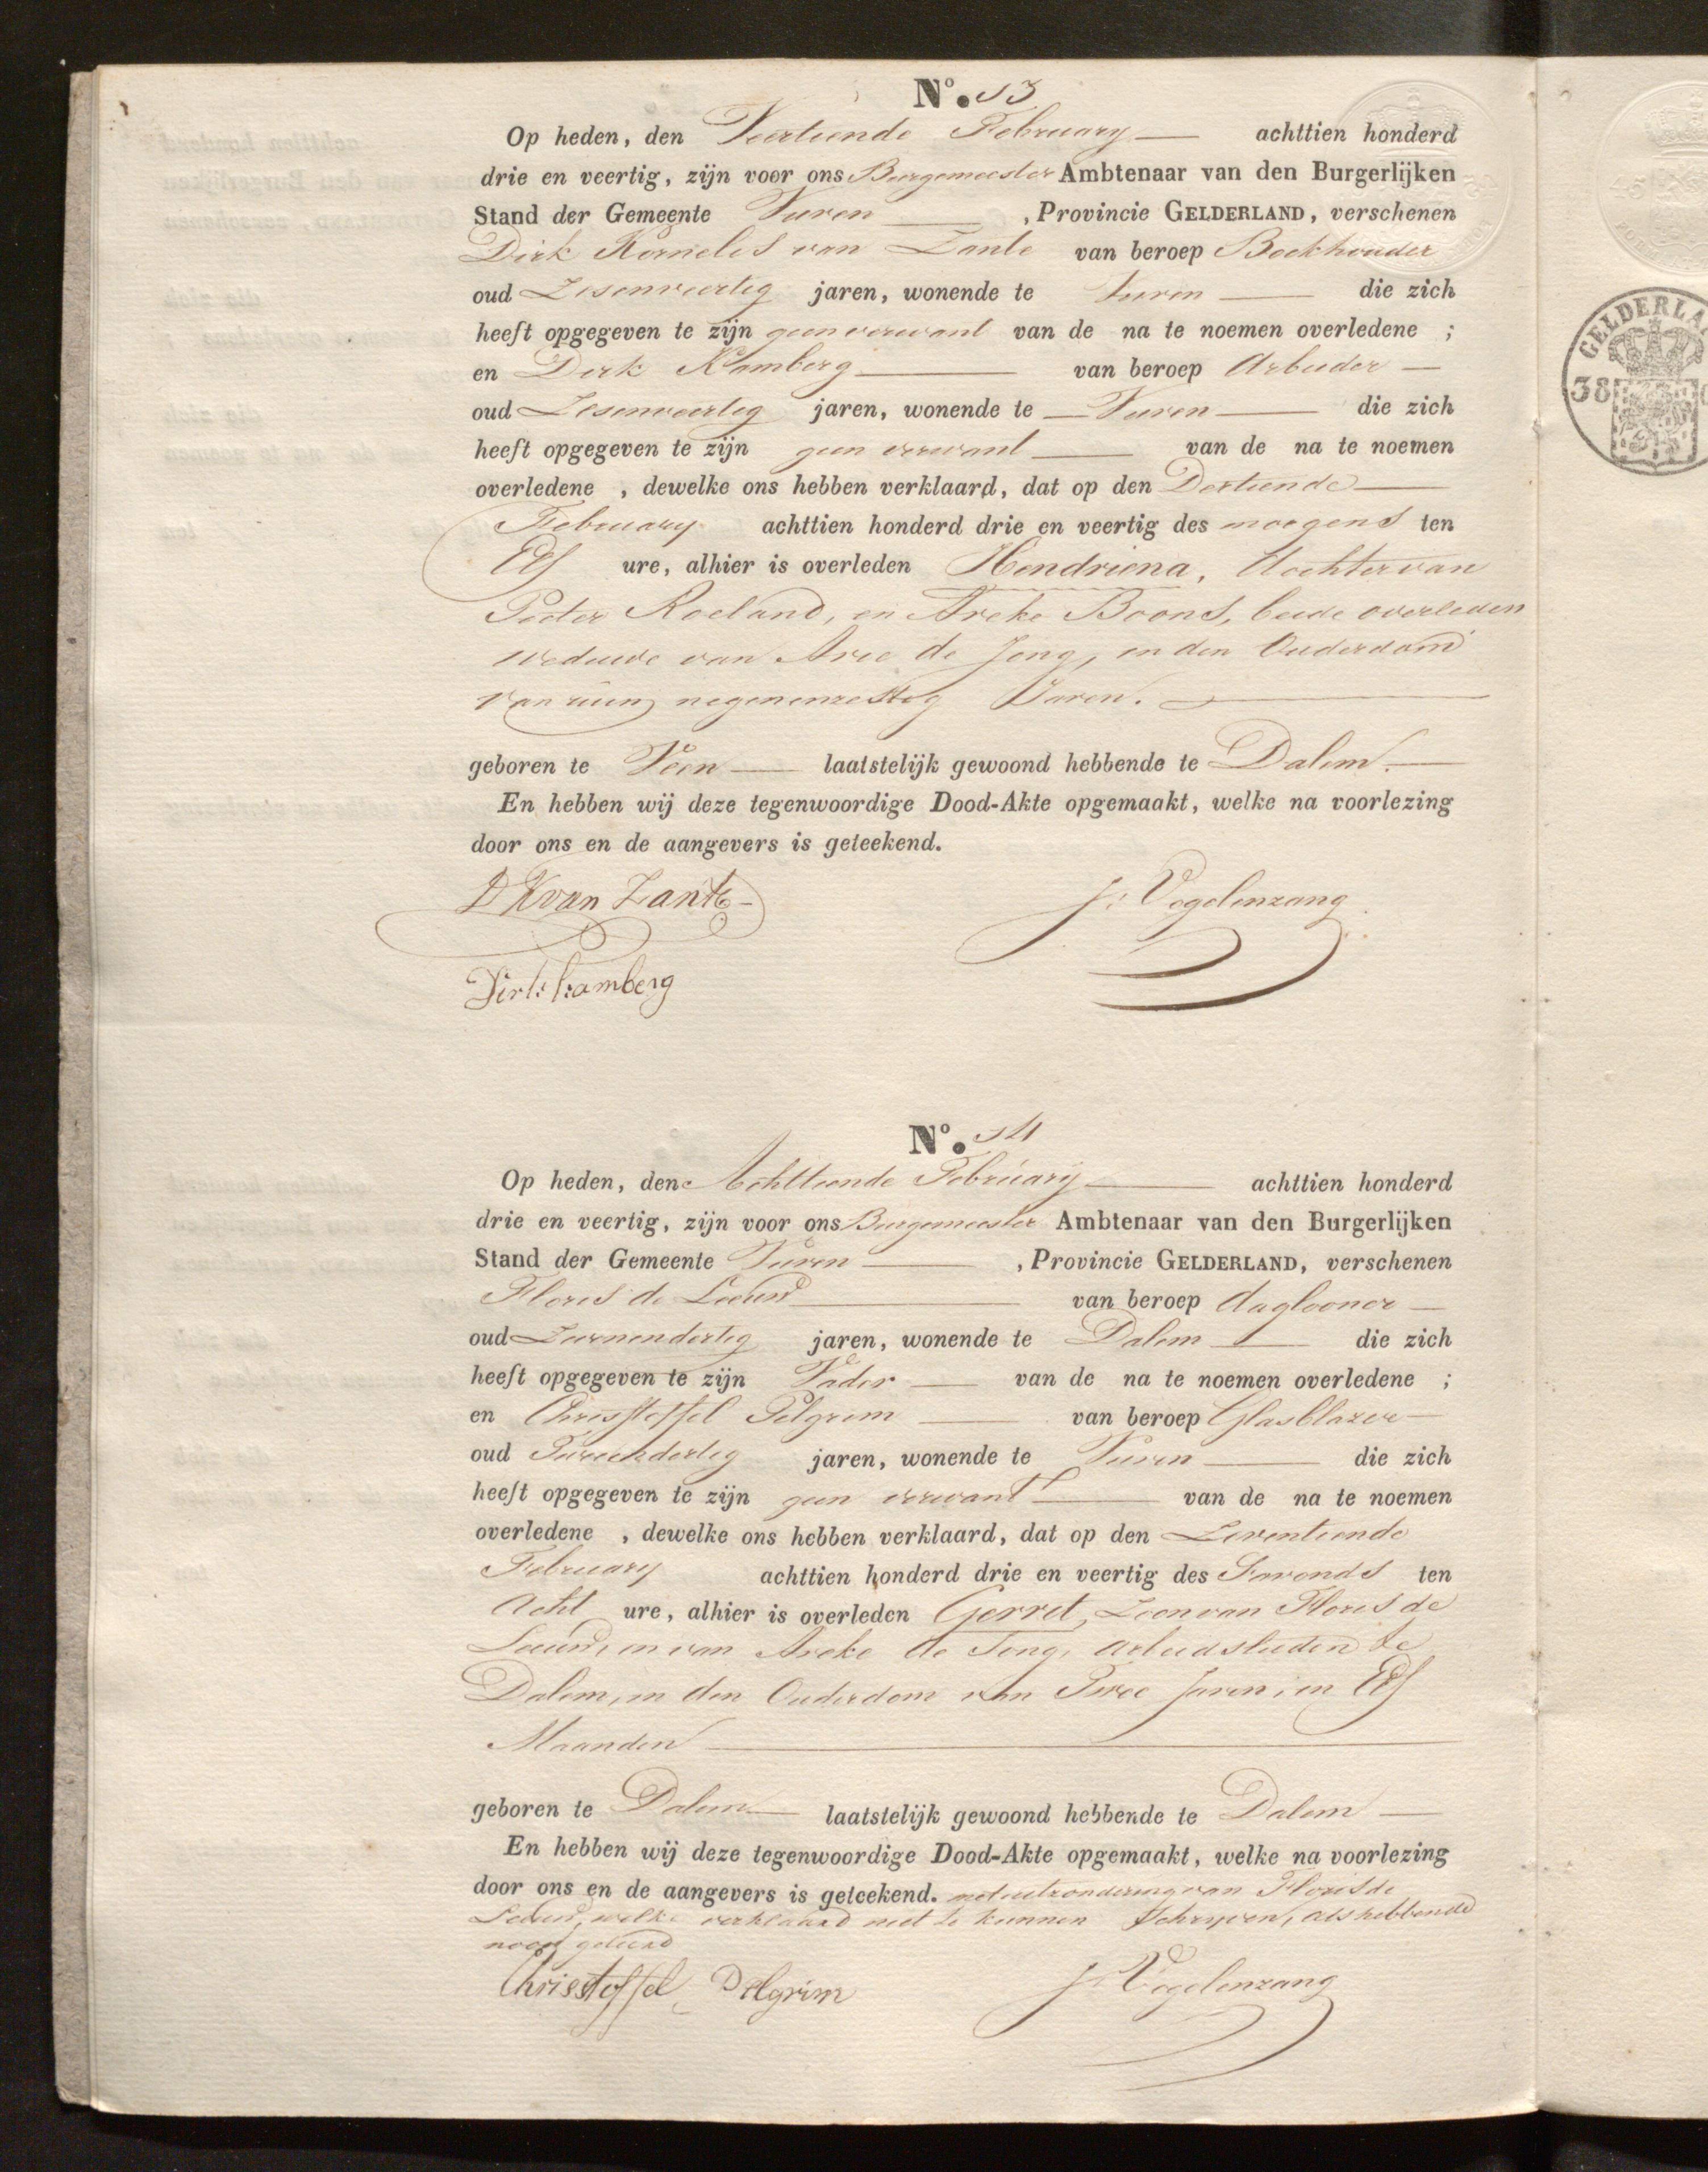 No. 13
Op heden, den Veertiende February achttien honderd
drie en veertig, zijn voor ons Burgemeester Ambtenaar van den Burgerlijken
Stand der Gemeente Vuren , Provincie GELDERLAND, verschenen
Dirk Kornelis van Zante van beroep Boekhouder
oud Zesenveertig jaren, wonende te Vuren die zich
heeft opgegeven te zijn geen verwant van de na te noemen overledene ;
en Dirk Kamberg van beroep Arbeider
oud Zesenveertig jaren, wonende te Vuren die zich
heeft opgegeven te zijn geen verwant van de na te noemen
overledene , dewelke ons hebben verklaard, dat op den Dertiende
February achttien honderd drie en veertig des morgens ten
Elf ure, alhier is overleden Hendriena, dochter van
Pieter Roeland, en Areke Boons, beide overleden
weduwe van Arie de Jong, in den Ouderdom
van ruim negenenzestig Jaren.
geboren te Veen laatstelijk gewoond hebbende te Dalem.
En hebben wij deze tegenwoordige Dood-Akte opgemaakt, welke na voorlezing
door ons en de aangevers is geteekend.
D K van Zante J: Vogelenzang
Dirk Kamberg
No. 14
Op heden, den Achttiende February achttien honderd
drie en veertig, zijn voor ons Burgemeester Ambtenaar van den Burgerlijken
Stand der Gemeente Vuren , Provincie GELDERLAND, verschenen
Floris de Leeuw van beroep daglooner
oud Zevenendertig jaren, wonende te Dalem die zich
heeft opgegeven te zijn Vader van de na te noemen overledene ;
en Chrisstoffel Pelgrim van beroep Glasblazer
oud Tweeendertig jaren, wonende te Vuren die zich
heeft opgegeven te zijn geen verwant van de na te noemen
overledene , dewelke ons hebben verklaard, dat op den Zeventiende
February achttien honderd drie en veertig des Savonds ten
Acht ure, alhier is overleden Gerret, Zoon van Floris de
Leeuw, en van Areke de Jong, arbeidslieden te
Dalem, in den Ouderdom van Twee Jaren, en Elf
Maanden
geboren te Dalem laatstelijk gewoond hebbende te Dalem
En hebben wij deze tegenwoordige Dood-Akte opgemaakt, welke na voorlezing
door ons en de aangevers is geteekend. met uitzondering van Floris de
Leeuw, welke verklaard niet te kunnen Schryven, als hebbende
nooit geleerd
Chrisstoffel Pelgrim J: Vogelenzang
GELDERLA
38